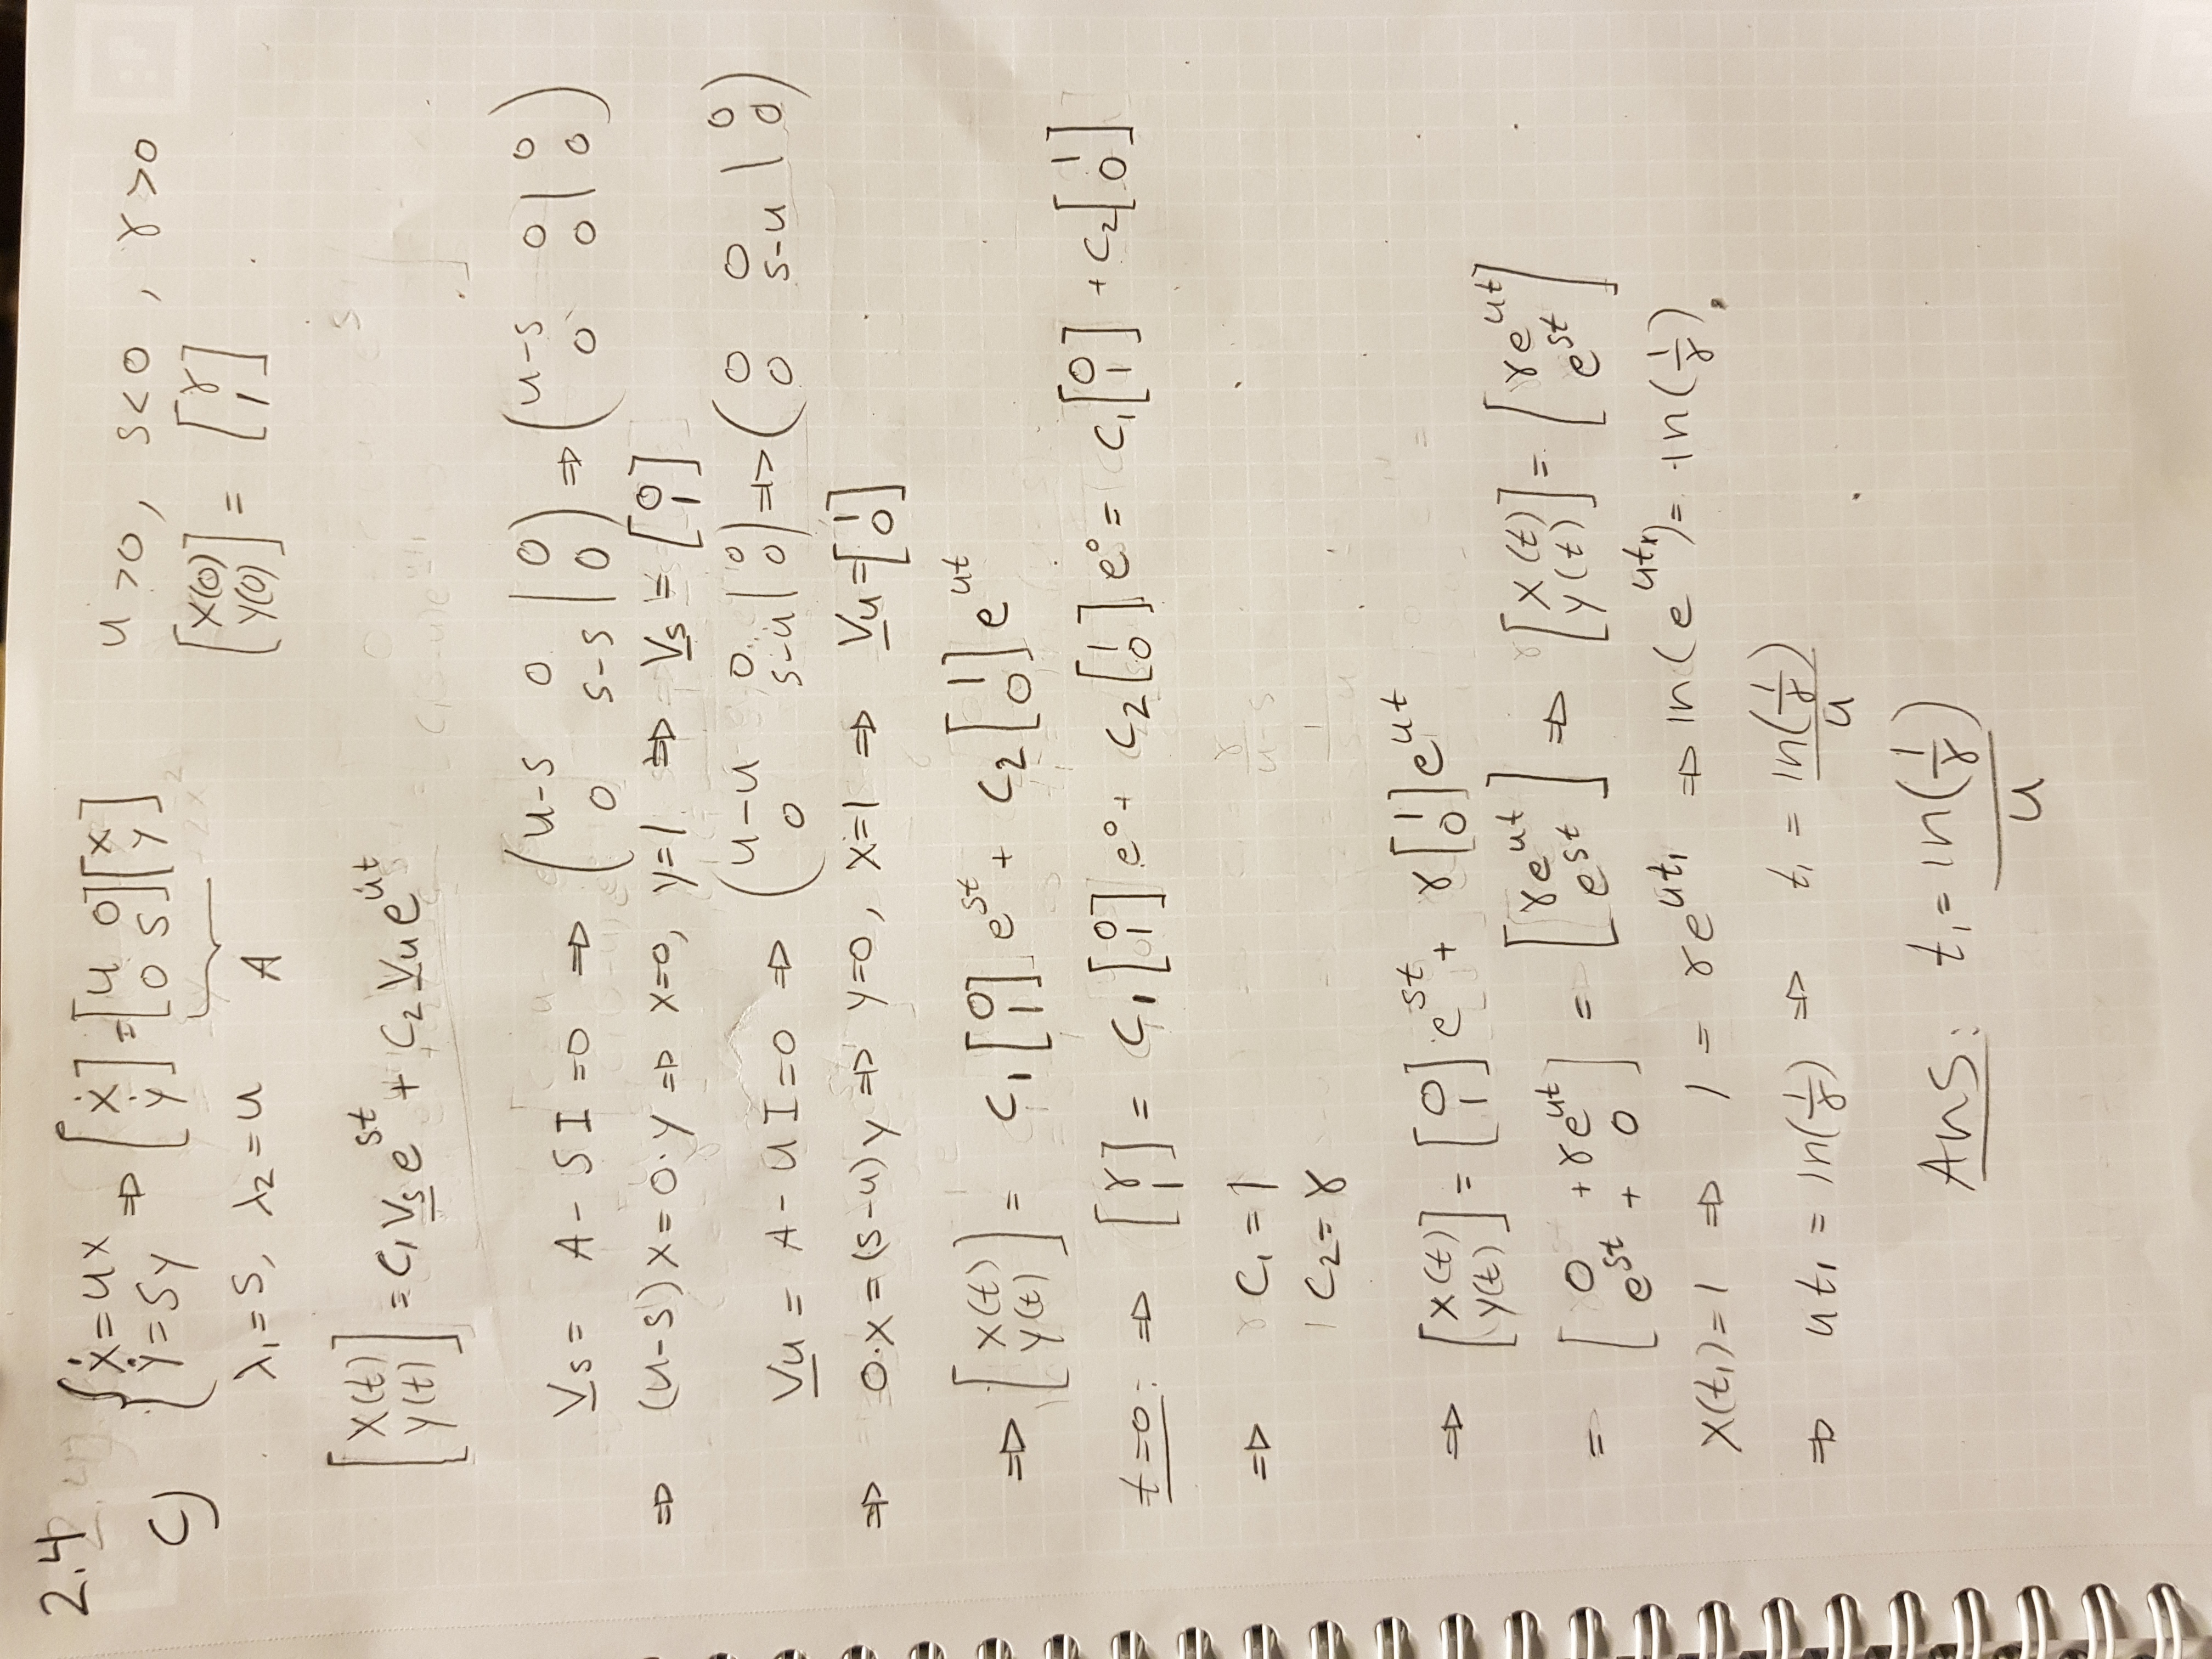 2.4
c) { ẋ = ux ⇒ [ẋ ẏ] = [u 0 0 s][x y] u>0, s<0, γ>0
ẏ = sy
A
[x(0) y(0)] = [γ 1]
λ₁ = s, λ₂ = u
[x(t) y(t)] = c₁ Vs e^st + c₂ Vu e^ut
Vs = A - sI = 0 ⇒ (u-s 0 | 0 0 s-s | 0) ⇒ (u-s 0 | 0 0 0 | 0)
⇒ (u-s)x = 0·y ⇒ x=0, y=1 ⇒ Vs = [0 1]
Vu = A - uI = 0 ⇒ (u-u 0 | 0 0 s-u | 0) ⇒ (0 0 | 0 0 s-u | 0)
⇒ 0·x = (s-u)y ⇒ y=0, x=1 ⇒ Vu = [1 0]
⇒ [x(t) y(t)] = c₁ [0 1] e^st + c₂ [1 0] e^ut
t=0: ⇒ [γ 1] = c₁ [0 1] e⁰ + c₂ [1 0] e⁰ = c₁ [0 1] + c₂ [1 0]
⇒ c₁ = 1
c₂ = γ
⇒ [x(t) y(t)] = [0 1] e^st + γ [1 0] e^ut
= [0 + γe^ut e^st + 0] = [γe^ut e^st] ⇒ [x(t) y(t)] = [γe^ut e^st]
x(t₁) = 1 ⇒ 1 = γe^ut₁ ⇒ ln(e^ut₁) = ln(1/γ)
⇒ ut₁ = ln(1/γ) ⇒ t₁ = ln(1/γ)/u
Ans: t₁ = ln(1/γ)/u